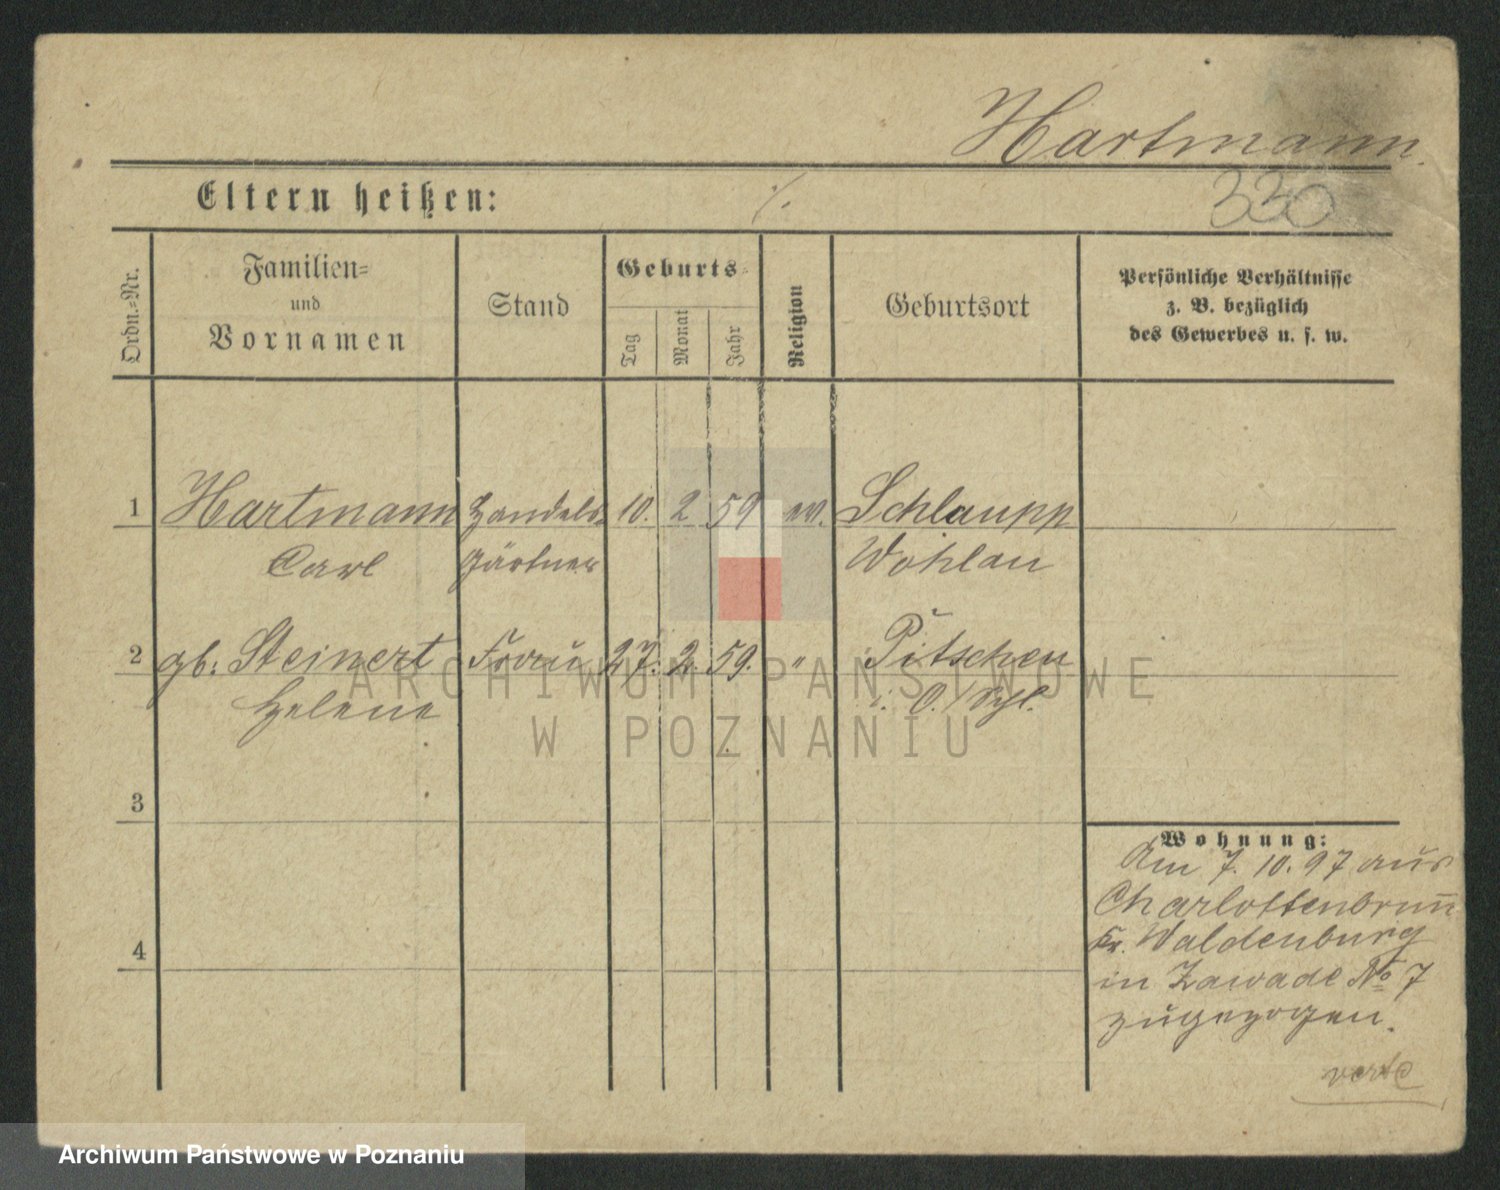 Hartmann.
Eltern heißen: ./.
330
Ordn.-Nr.
Familien-
und
Vornamen
Stand
Geburts-
Tag
Monat
Jahr
Religion
Geburtsort
Persönliche Verhältnisse
z. B. bezüglich
des Gewerbes u. s. w.
1 Hartmann Handels- 10. 2. 59 ev. Schlaupp
Carl gärtner Wohlau
2 gb. Steinert Frau 27. 2. 59. " Pitschen
Helene i. O./Schl.
3
4
Wohnung:
Am 7. 10. 97 aus
Charlottenbrunn
Kr. Waldenburg
in Zawade No 7
zugezogen.
verte
ARCHIWUM PAŃSTWOWE
W POZNANIU
Archiwum Państwowe w Poznaniu